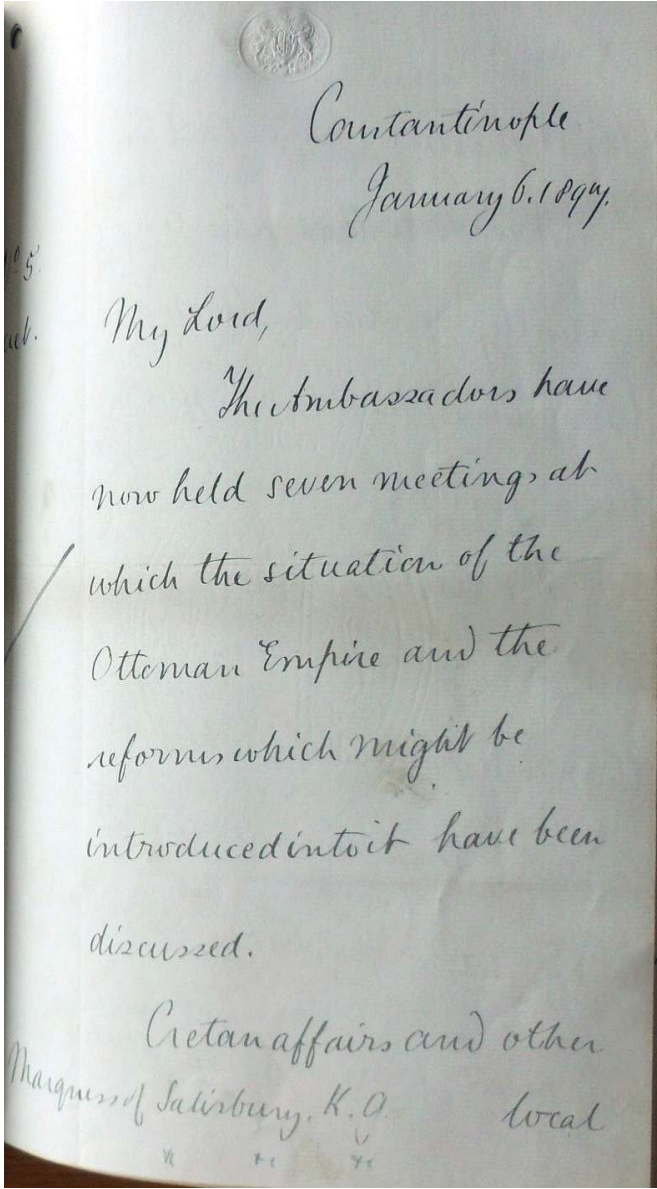 Constantinople
January 6. 1897.
5.
My Lord,
The Ambassadors have
now held seven meetings at
which the situation of the
Ottoman Empire and the
reforms which might be
introduced into it have been
discussed.
Cretan affairs and other
Marquess of Salisbury. K. G.
local